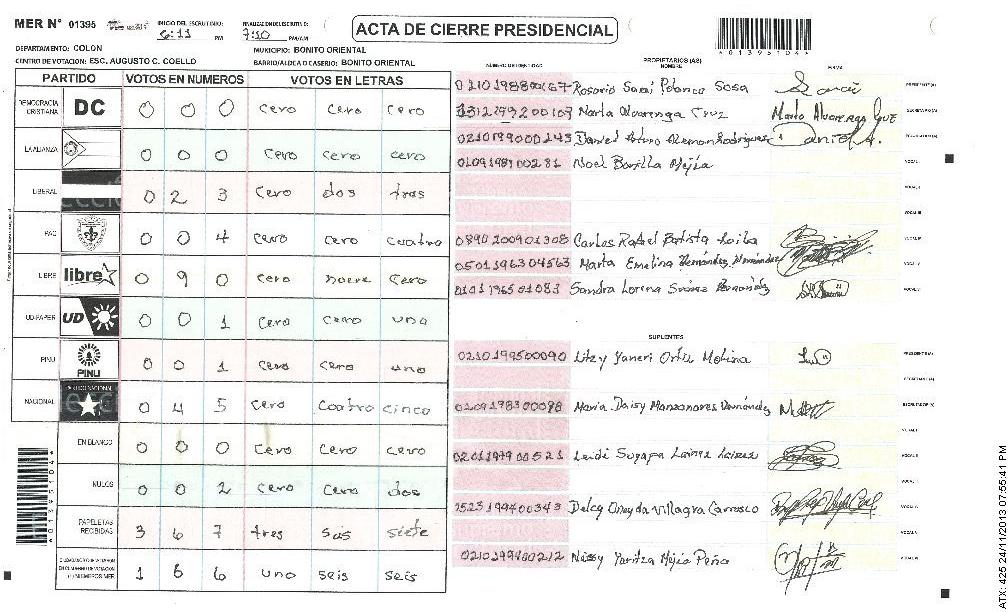 MER N° 01395
INICIO DEL ESCRUTINIO: 6:11 PM
FINALIZACION ESCRUTINIO: 7:10 PM/AM
ACTA DE CIERRE PRESIDENCIAL
4013951041
DEPARTAMENTO: COLON
MUNICIPIO: BONITO ORIENTAL
CENTRO DE VOTACION: ESC. AUGUSTO C. COELLO
BARRIO/ALDEA O CASERIO: BONITO ORIENTAL
PARTIDO VOTOS EN NUMEROS VOTOS EN LETRAS
DEMOCRACIA CRISTIANA DC 0 0 0 cero cero cero
LA ALIANZA 0 0 0 cero cero cero
LIBERAL 0 2 3 cero dos tres
PAC 0 0 4 cero cero cuatro
LIBRE libre 0 9 0 cero nueve cero
UD-FAPER UD 0 0 1 cero cero uno
PINU PINU 0 0 1 cero cero uno
NACIONAL PARTIDO NACIONAL 0 4 5 cero cuatro cinco
EN BLANCO 0 0 0 cero cero cero
NULOS 0 0 2 cero cero dos
PAPELETAS RECIBIDAS 3 6 7 tres seis siete
1 6 6 uno seis seis
NUMERO DE IDENTIDAD
PROPIETARIOS (AS)
NOMBRE
FIRMA
0210198800167 Rosario Sarai Polanco Sosa PRESIDENTE(A)
Marta Alvarenga Cruz SECRETARIO(A)
0210199000143 Daniel Arturo Aleman Rodriguez Daniel A.
0209198100281 Noel Bonilla Mejia VOCAL I
VOCAL II
VOCAL III
0890200901308 Carlos Rafael Batista Loiba VOCAL IV
0501196304563 Marta Emelina Hernández Hernández VOCAL V
0101196501083 Sandra Lorena Suárez Hernández
SUPLENTES
0210199500090 Litzy Yaneri Ortiz Molina PRESIDENTE(A)
SECRETARIO(A)
0209198300098 Maria Daisy Manzanares Hernández ESCRUTADOR(A)
0201197900521 Leidi Suyapa Lainez Lainez
Delcy Oneyda Villagra Carrasco
0210199400212 Nessy Yaritza Mejia Peña
4013951041
ATX: 425 24/11/2013 07:55:41 PM